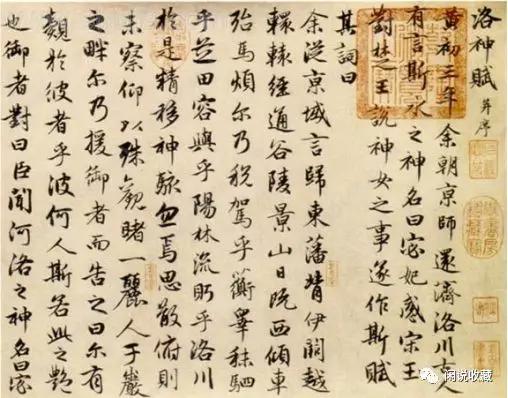 洛神賦 并序
黃初三年余朝京師還濟洛川古人
有言斯水之神名曰宓妃感宋王
對楚王說神女之事遂作斯賦
其詞曰
余從京域言歸東藩背伊闕越
轘轅經通谷陵景山日既西傾車
殆馬煩尔乃稅駕乎蘅皋秣駟
乎芝田容與乎陽林流眄乎洛川
於是精移神駭忽焉思散俯則
未察仰以殊觀睹一麗人于巖
之畔尔乃援御者而告之曰尔有
覿於彼者乎彼何人斯若此之艷
也御者對曰臣聞河洛之神名曰宓
闲说收藏